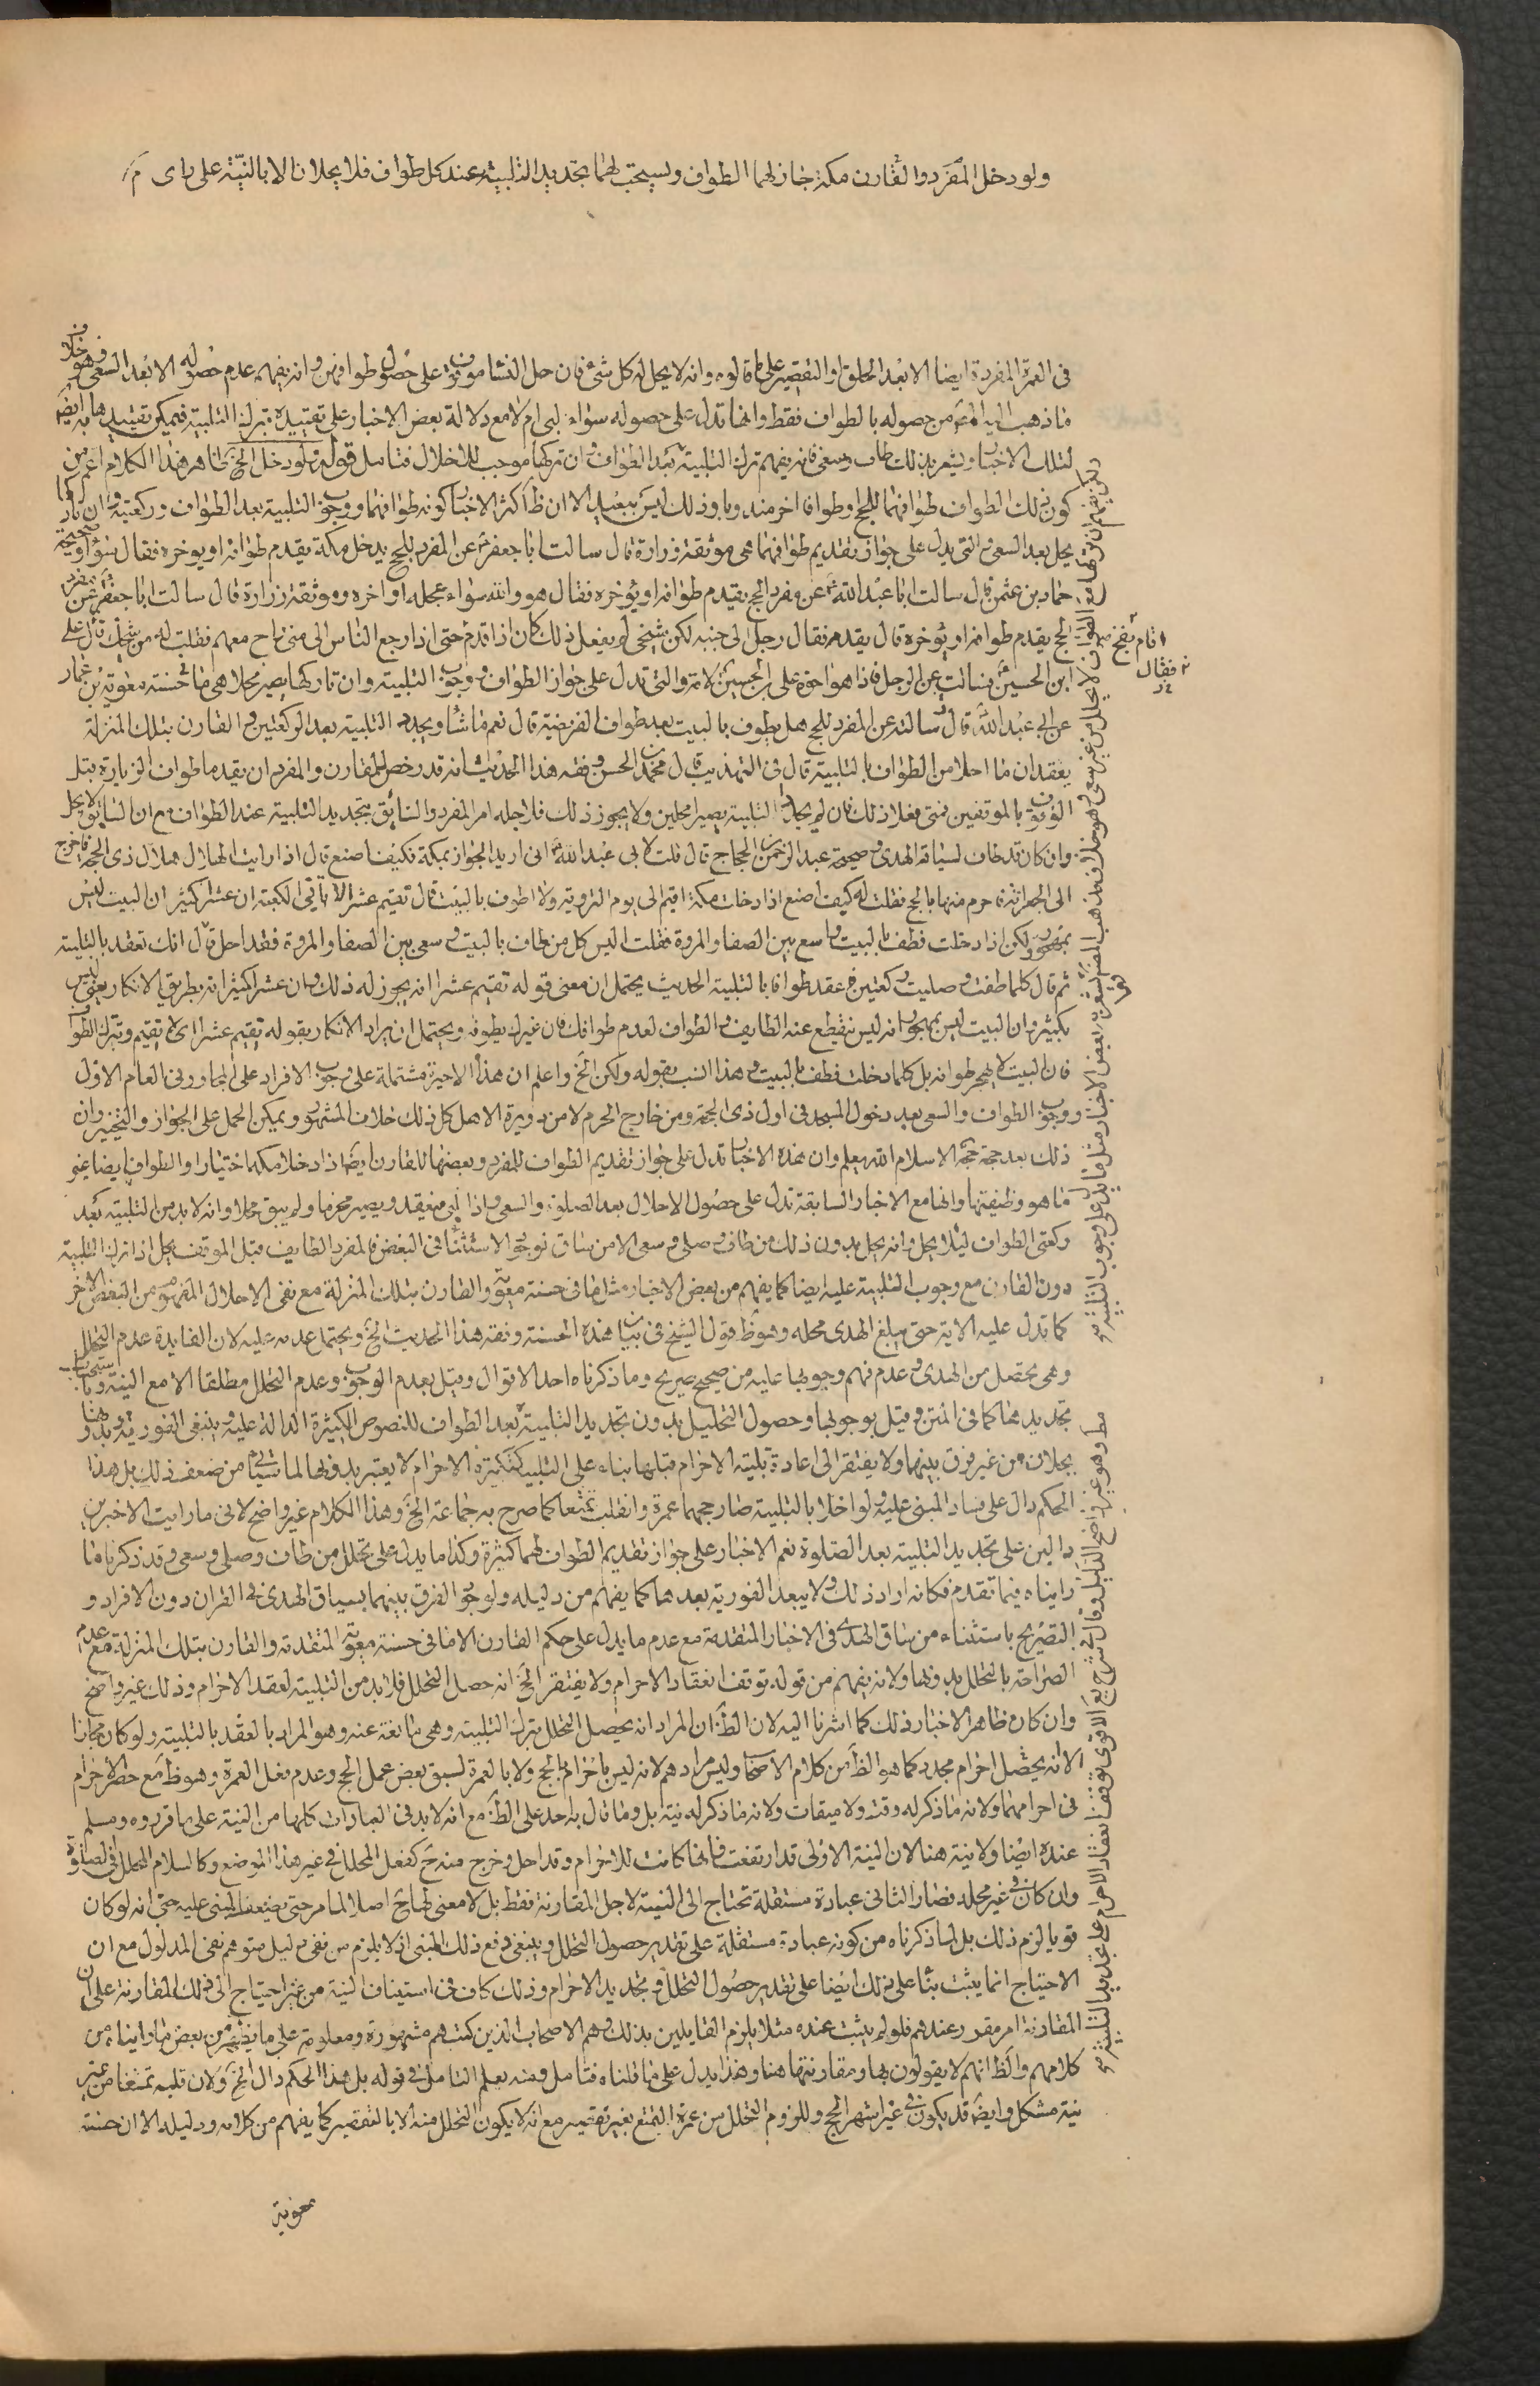 ولو دخل المفرد والقارن مكة جاز لهما الطواف ويستحب لهما تجديد التلبية عند كل طواف فلا يحلان الا بالنية على راى م
فى العمرة المفردة ايضا الا بعد الحلق او التقصير على ما قالوه وانه لا يحل له كل شئ فان حل النساء موقوفة على حصول طوافهن وانه يفهم عدم حصوله الا بعد السعى وهو خلاف
ما ذهب اليه المصنف من حصوله بالطواف فقط وانها تدل على حصوله سواء لبى ام لا مع دلالة بعض الاخبار على تقييده بترك التلبية فيمكن تقييدها به ايضا
لتلك الاخبار ويشعر بذلك طاف وسعى فانه يفهم ترك التلبية بعد الطواف وان تركها موجب للاخلال فتامل قوله ولو دخل الخ ظاهر هذا الكلام اعم من
كون ذلك الطواف طوافهما للحج او طوافا اخر مندوبا وذلك ليس ببعيد الا ان ظ اكثر الاخبار كونه طوافهما ووجوب التلبية بعد الطواف وركعتيه وان تاركها
يحل بعد السعى والتى يدل على جواز تقديم طوافهما هى موثقة زرارة قال سالت ابا جعفر ع عن المفرد للحج يدخل مكة يقدم طوافه او يؤخره فقال سواء وصحيحة
حماد بن عثمن قال سالت ابا عبد الله ع عن مفرد الحج يقدم طوافه او يؤخره فقال هو والله سواء عجله او اخره وموثقة زرارة قال سالت ابا جعفر ع عن مفرد
الحج يقدم طوافه او يؤخره قال يقدمه فقال رجل الى جنبه لكن شيخى لم يفعل ذلك كان اذا قدم حتى اذا رجع الناس الى منى راح معهم فقلت له من شيخك قال على
ابن الحسين ع فسالت عن الرجل فاذا هو اخو على بن الحسين ع لامه والتى تدل على جواز الطواف ووجوب التلبية وان تاركها يصير محلا هى ما فى حسنة معوية بن عمار
عن ابى عبد الله ع قال سالته عن المفرد للحج هل يطوف بالبيت بعد طواف الفريضة قال نعم ما شاء ويجدد التلبية بعد الركعتين والقارن بتلك المنزلة
يعقدان ما احلا من الطواف بالتلبية قال فى التهذيب قال محمد بن الحسن وفقه هذا الحديث انه قد رخص للقارن والمفرد ان يقدما طواف الزيارة قبل
الوقوف بالموقفين فمتى فعلا ذلك فان لم يجددا التلبية يصيرا محلين ولا يجوز ذلك فلاجله امر المفرد والسائق بتجديد التلبية عند الطواف مع ان السائق لا يحل
وان كان قد طاف لسياقه الهدى وصحيحة عبد الرحمن بن الحجاج قال قلت لابى عبد الله ع انى اريد الجوار بمكة فكيف اصنع قال اذا رايت الهلال هلال ذى الحجة فاخرج
الى الجعرانة فاحرم منها بالحج فقلت له كيف اصنع اذا دخلت مكة اقيم الى يوم التروية ولا اطوف بالبيت قال تقيم عشرا لا تاتى الكعبة ان عشرا لكثير ان البيت ليس
بمهجور ولكن اذا دخلت فطف بالبيت واسع بين الصفا والمروة فقلت اليس كل من طاف بالبيت وسعى بين الصفا والمروة فقد احل قال انك تعقد بالتلبية
ثم قال كلما طفت وصليت ركعتين فاعقد طوافا بالتلبية الحديث يحتمل ان معنى قوله تقيم عشرا انه يجوز له ذلك وان عشرا كثيرا انه بطريق الانكار يعنى ليس
بكثير وان البيت ليس بمهجور انه ليس ينقطع عنه الطايف والطواف لعدم طوافك فان غيرك يطوفه ويحتمل ان يراد الانكار بقوله تقيم عشرا اى لا تقيم وتترك الطواف
فان البيت لا يهجر طوافه بل كلما دخلت فطف بالبيت وهذا انسب بقوله ولكن الخ واعلم ان هذه الاخيرة مشتملة على وجوب الافراد على المجاور وفى العام الاول
ووجوب الطواف والسعى بعد دخول المسجد فى اول ذى الحجة ومن خارج الحرم لا من دويرة الاهل كل ذلك خلاف المشهور ويمكن الحمل على الجواز والتخيير وان
ذلك بعد حجة الاسلام الله يعلم وان هذه الاخبار تدل على جواز تقديم الطواف للمفرد وبعضها للقارن ايضا اذا دخلا مكة اختيارا والطواف ايضا غير
ما هو وظيفتها وانها مع الاخبار السابقة تدل على حصول الاحلال بعد الصلوة والسعى واذا لبى فيعقد ويصير محرما ولم يبق محلا وانه لا بد من التلبية بعد
ركعتى الطواف لئلا يحل وانه يحل بدون ذلك من طاف وصلى وسعى الا من ساق لوجود الاستثناء فى البعض فالمفرد الطايف قبل الموقف يحل اذا ترك التلبية
دون القارن مع وجوب التلبية عليه ايضا كما يفهم من بعض الاخبار مثل ما فى حسنة معوية والقارن بتلك المنزلة مع نفى الاحلال المفهوم من البعض الاخر
كما تدل عليه الاية حتى يبلغ الهدى محله وهو ظ قول الشيخ فى بيان هذه الحسنة وفقه هذا الحديث الخ ويحتمل عدمه عليه لان الفايدة عدم التحلل
وهى يحتصل من الهدى وعدم فهم وجوبها عليه من صحيح صريح وما ذكرناه احد الاقوال وقيل بعدم الوجوب وعدم التحلل مطلقا الا مع النية وباستحباب
تجديدها كما فى المتن وقيل بوجوبها وحصول التحليل بدون تجديد التلبية بعد الطواف للنصوص الكثيرة الدالة عليه وينبغى الفورية وبدونها
يحلان من غير فرق بينهما ولا يفتقر الى اعادة تلبية الاحرام قبلها بناء على ان التلبية كتكبيرة الاحرام لا يعتبر بدونها لما سياتى من ضعف ذلك بل هذا
الحكم دال على فساد المبنى عليه ولو اخلا بالتلبية صار حجهما عمرة وانقلب تمتعا كما صرح به جماعة الخ وهذا الكلام غير واضح لانى ما رايت الاخبار
دالين على تجديد التلبية بعد الصلوة نعم الاخبار على جواز تقديم الطواف لهما كثيرة وكذا ما يدل على تحلل من طاف وصلى وسعى وقد ذكرنا ما
رايناه فيما تقدم فكانه اراد ذلك ولا يبعد الفورية بعدهما كما يفهم من دليله ولوجود الفرق بينهما بسياق الهدى فى القران دون الافراد و
التصريح باستثناء من ساق الهدى فى الاخبار المتقدمة مع عدم ما يدل على حكم القارن الا ما فى حسنة معوية المتقدمة والقارن بتلك المنزلة مع عدم
الصراحة بالتحلل بدونها ولانه يفهم من قوله توقف انعقاد الاحرام ولا يفتقر الخ انه حصل التحلل فلا بد من التلبية لعقد الاحرام وذلك غير واضح
وان كان ظاهر الاخبار ذلك كما اشرنا اليه لان الظ ان المراد انه يحصل التحلل بترك التلبية وهى مانعة عنه وهو المراد بالعقد بالتلبية ولو كان مجازا
الا انه يحصل احرام مجدد كما هو الظ من كلام الاصحاب وليس مرادهم لانه ليس باحرام بالحج ولا بالعمرة لسبق بعض عمل الحج وعدم فعل العمرة وهو ظ مع حصر الاحرام
فى احرامهما ولانه ما ذكر له وقت ولا ميقات ولانه ما ذكر له نية بل وما قال به احد على الظ مع انه لا بد فى العبادات كلها من النية على ما قرروه ومسلم
عنده ايضا ولا نية هنا لان النية الاولى قد ارتفعت فانها كانت للاحرام وقد احل وخرج منه ح كفعل المحلل فى غير هذا الموضع وكالسلام المحلل فى الصلوة
وان كان فى غير محله فصار الثانى عبادة مستقلة تحتاج الى النية لا لاجل المقارنة فقط بل لا معنى لها ح اصلا لما مر حتى يضعف المبنى عليه حتى انه لو كان
قويا لزم ذلك بل لما ذكرناه من كونه عبادة مستقلة على تقدير حصول التحلل وينبغى دفع ذلك المبنى اذ لا يلزم من نفى دليل متوهم نفى المدلول مع ان
الاحتياج انما يثبت بناء على ذلك ايضا على تقدير حصول التحلل وتجديد الاحرام وذلك كاف فى استيناف النية من غير احتياج الى ذلك المقارنة على ان
المقارنة امر مقرر عندهم فلو لم يثبت عنده مثلا يلزم القايلين بذلك وهم الاصحاب الذين كتبهم مشهورة ومعلومة على ما يظهر من بعض ما رايناه من
كلامهم والظ انهم لا يقولون بها ومقارنتها هنا وهذا يدل على ما قلناه فتامل ومنه يعلم التامل فى قوله بل هذا الحكم دال الخ ولان قلبه تمتعا من غير
نية مشكل وايضا قد يكون فى غير اشهر الحج وللزوم التحلل من عمرة التمتع بغير تقصير مع انه لا يكون التحلل منه الا بالتقصير كما يفهم من كلامه ودليله الا ان حسنة
معوية
اقام بفخ صح
فقال